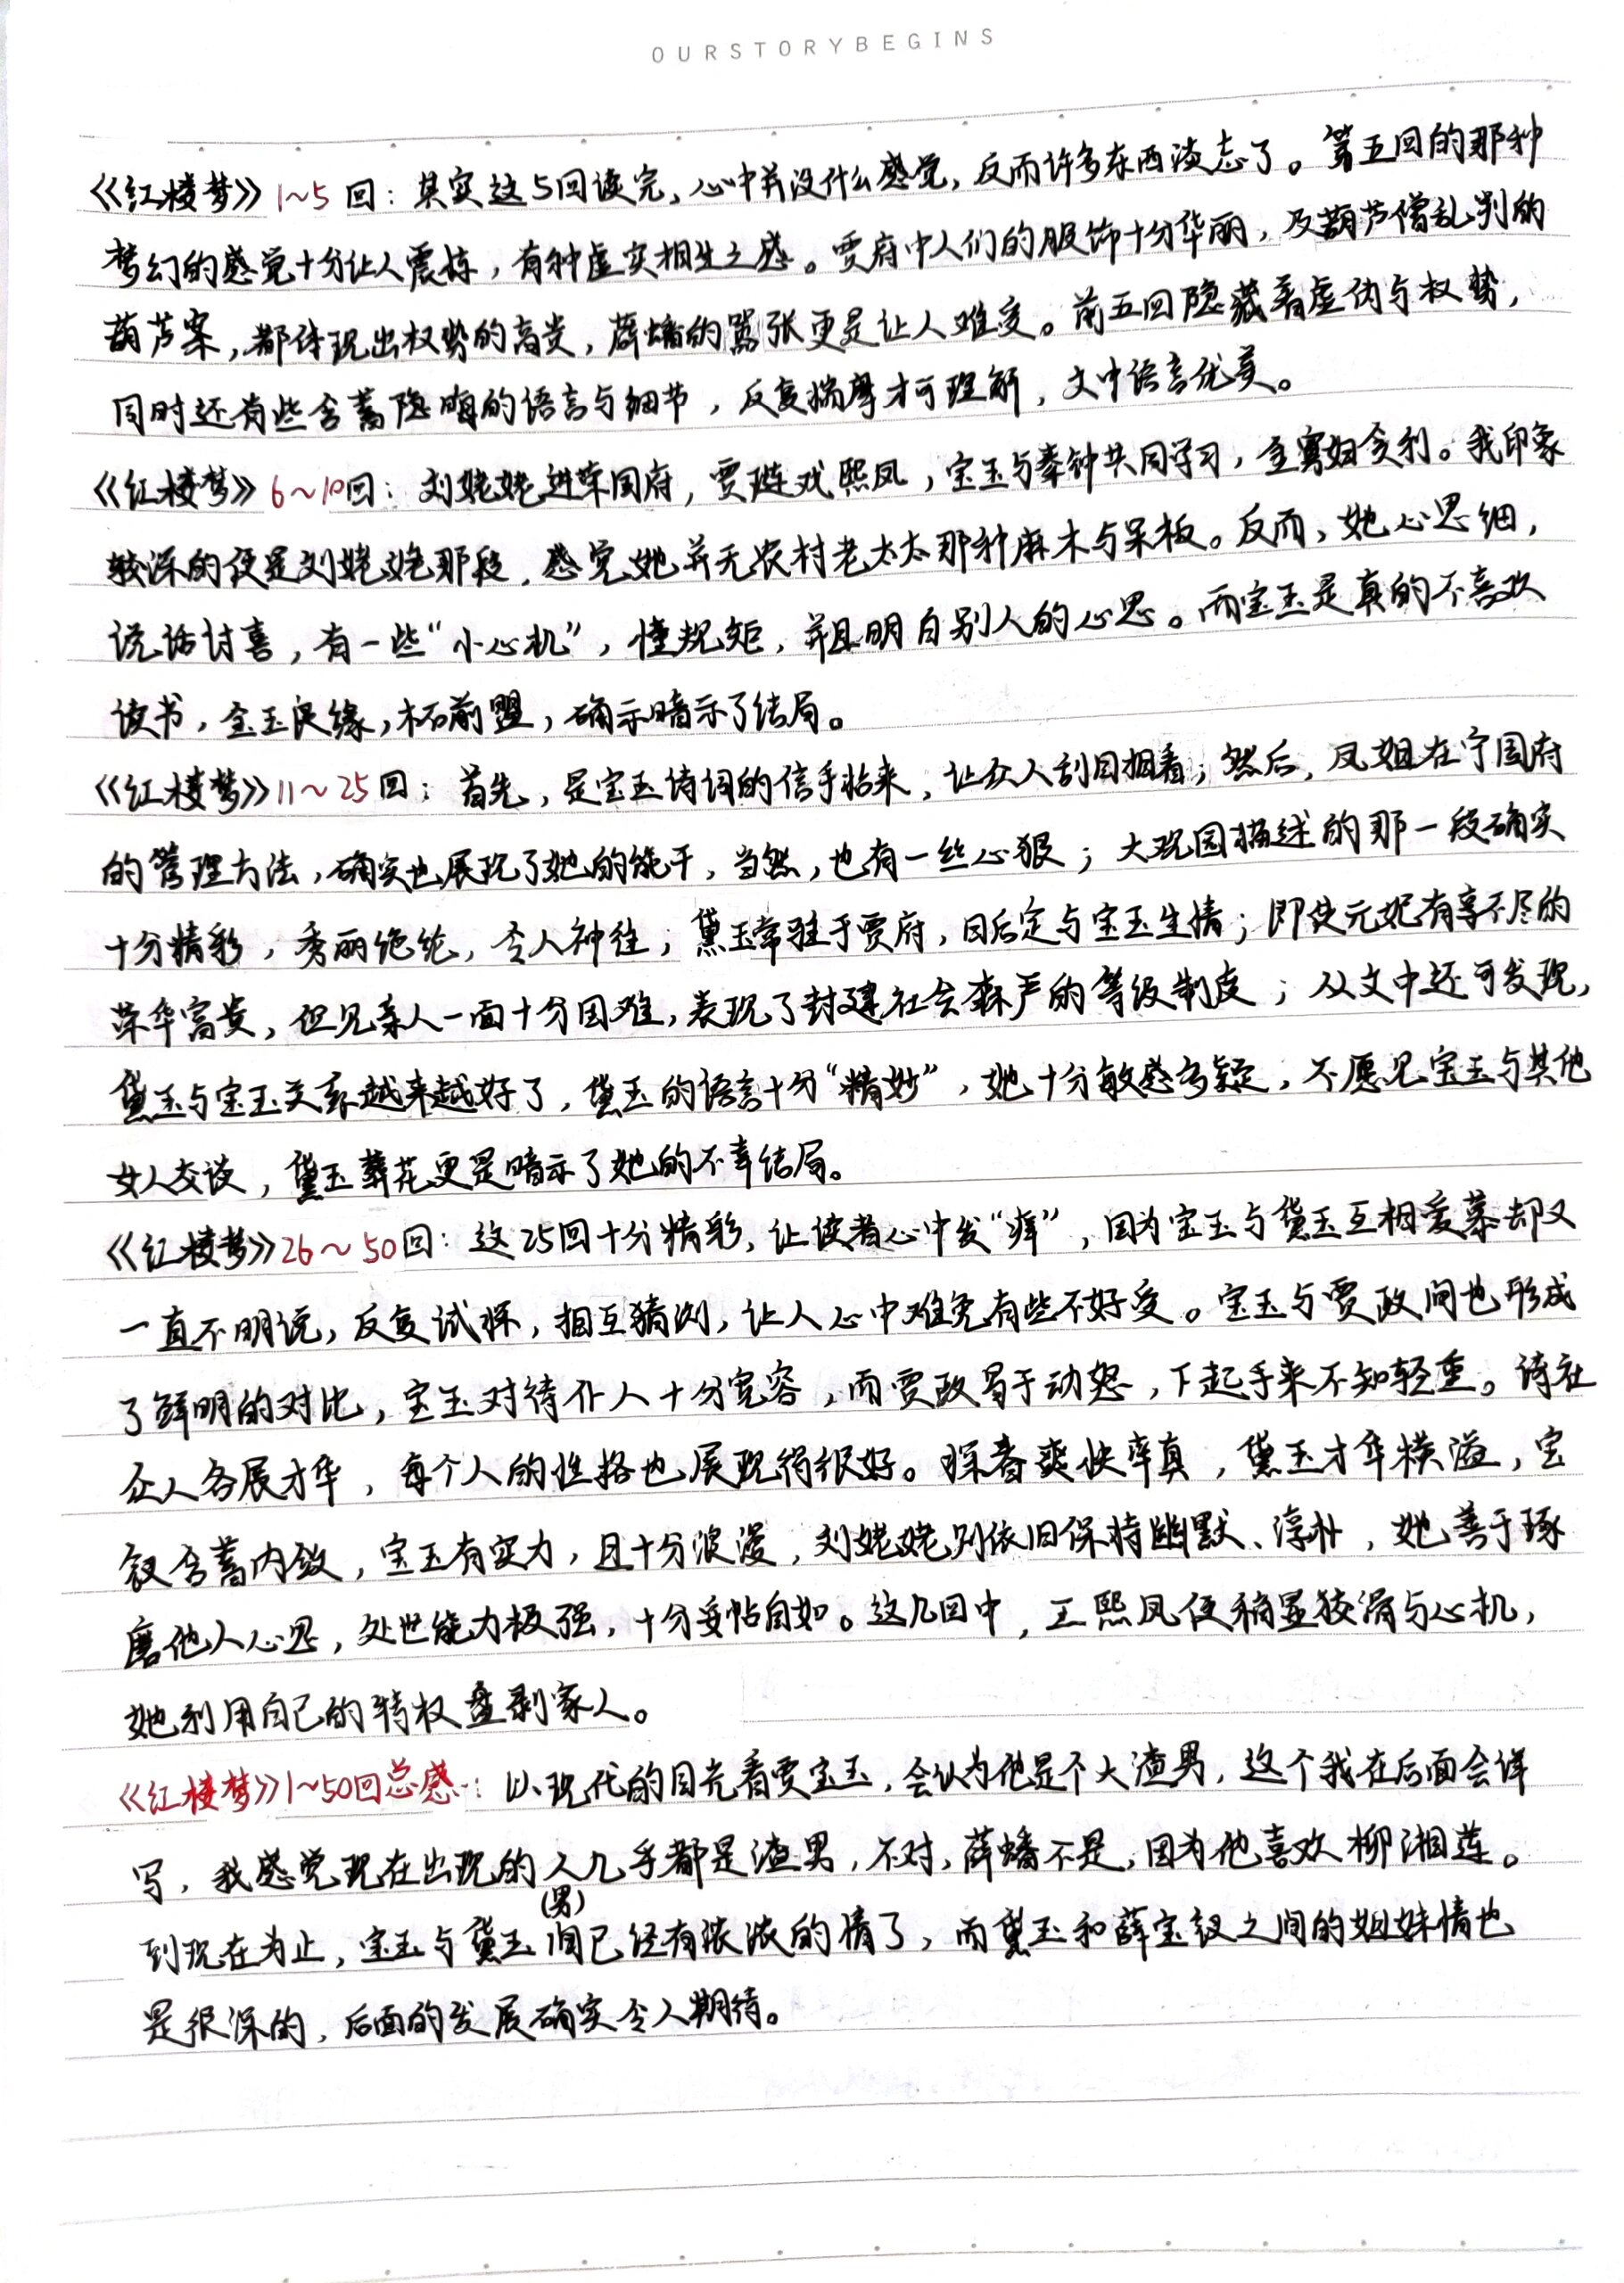 OURSTORYBEGINS
《红楼梦》1~5回：其实这5回读完，心中并没什么感觉，反而许多东西淡忘了。第五回的那种
梦幻的感觉十分让人震撼，有种虚实相生之感。贾府中人们的服饰十分华丽，及葫芦僧乱判的
葫芦案，都体现出权势的高贵，薛蟠的嚣张更是让人难受。前五回隐藏着虚伪与权势，
同时还有些含蓄隐晦的语言与细节，反复揣摩才可理解，文中语言优美。
《红楼梦》6~10回：刘姥姥进荣国府，贾琏戏熙凤，宝玉与秦钟共同学习，金寡妇贪利。我印象
较深的便是刘姥姥那段，感觉她并无农村老太太那种麻木与呆板。反而，她心思细，
说话讨喜，有一些“小心机”，懂规矩，并且明白别人的心思。而宝玉是真的不喜欢
读书，金玉良缘，木石前盟，确示暗示了结局。
《红楼梦》11~25回：首先，是宝玉诗词的信手拈来，让众人刮目相看；然后，凤姐在宁国府
的管理方法，确实也展现了她的能干，当然，也有一丝心狠；大观园描述的那一段确实
十分精彩，秀丽绝纶，令人神往；黛玉常驻于贾府，日后定与宝玉生情；即使元妃有享不尽的
荣华富贵，但见亲人一面十分困难，表现了封建社会森严的等级制度；从文中还可发现，
黛玉与宝玉关系越来越好了，黛玉的语言十分“精妙”，她十分敏感多疑，不愿见宝玉与其他
女人交谈，黛玉葬花更是暗示了她的不幸结局。
《红楼梦》26~50回：这25回十分精彩，让读者心中发“痒”，因为宝玉与黛玉互相爱慕却又
一直不明说，反复试探，相互猜测，让人心中难免有些不好受。宝玉与贾政间也形成
了鲜明的对比，宝玉对待仆人十分宽容，而贾政易于动怒，下起手来不知轻重。诗社
众人各展才华，每个人的性格也展现得很好。探春爽快率真，黛玉才华横溢，宝
钗含蓄内敛，宝玉有实力，且十分浪漫，刘姥姥则依旧保持幽默、淳朴，她善于琢
磨他人心思，处世能力极强，十分妥帖自如。这几回中，王熙凤便稍显狡猾与心机，
她利用自己的特权盘剥家人。
《红楼梦》1~50回总感：以现代的目光看贾宝玉，会认为他是个大渣男，这个我在后面会详
写，我感觉现在出现的人几乎都是渣男，不对，薛蟠不是，因为他喜欢柳湘莲。
(男)
到现在为止，宝玉与黛玉间已经有浓浓的情了，而黛玉和薛宝钗之间的姐妹情也
是很深的，后面的发展确实令人期待。